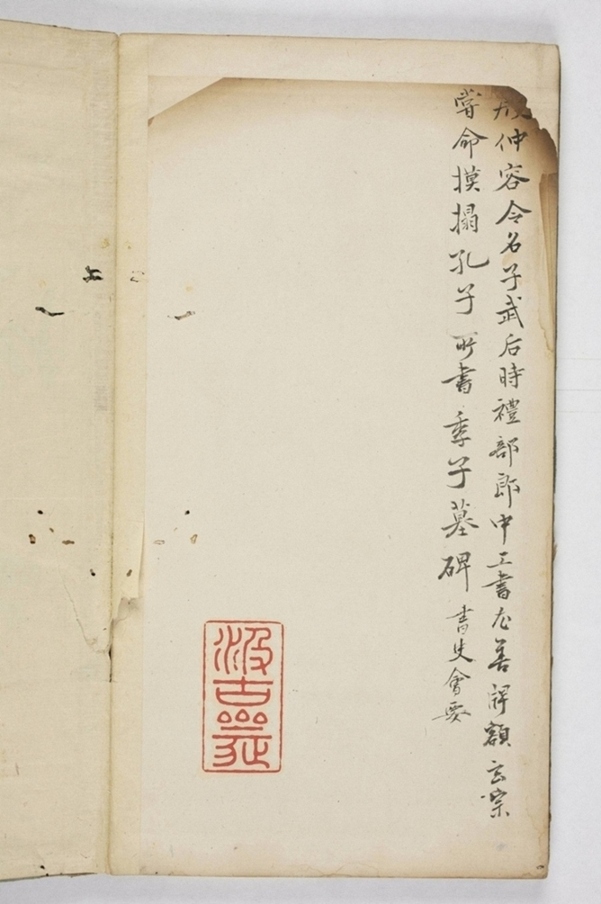 仲容令名子武后時禮部郎中工書尤善牌額玄宗
嘗命摸搨孔子所書季子墓碑 書史會要
汲古